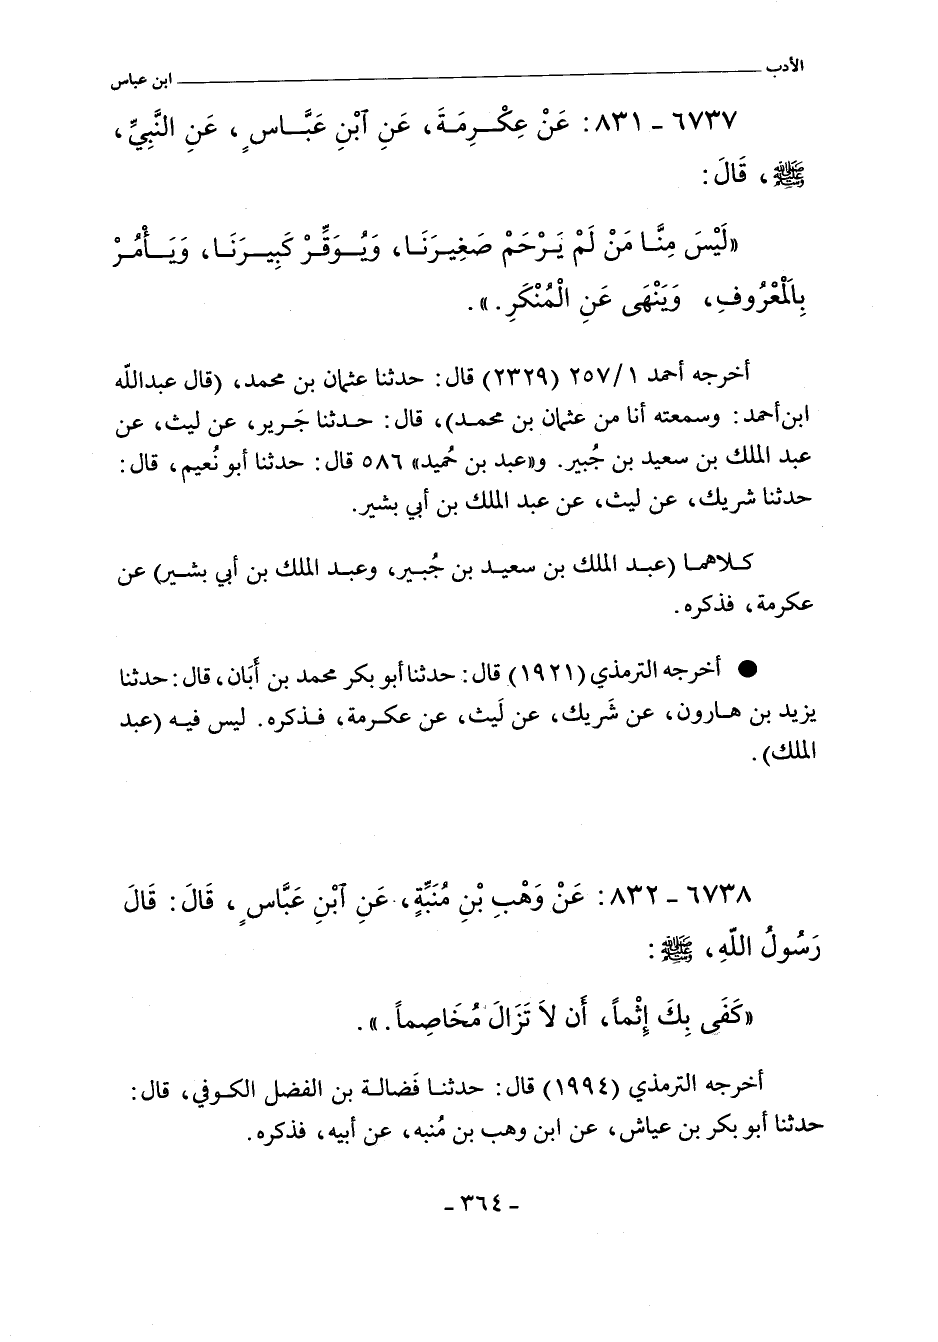 الأدب ابن عباس
٦٧٣٧ - ٨٣١: عَنْ عِكْرِمَةَ، عَنِ آبْنِ عَبَّاسٍ، عَنِ النَّبِيِّ،
ﷺ، قَالَ:
«لَيْسَ مِنَّا مَنْ لَمْ يَرْحَمْ صَغِيرَنَا، وَيُوَقِّرْ كَبِيرَنَا، وَيَأْمُرْ
بِالْمَعْرُوفِ، وَيَنْهَى عَنِ الْمُنْكَرِ.».
أخرجه أحمد ٢٥٧/١ (٢٣٢٩) قال: حدثنا عثمان بن محمد، (قال عبدالله
ابن أحمد: وسمعته أنا من عثمان بن محمد)، قال: حدثنا جَرير، عن ليث، عن
عبد الملك بن سعيد بن جُبير. و«عبد بن حُميد» ٥٨٦ قال: حدثنا أبو نُعيم، قال:
حدثنا شريك، عن ليث، عن عبد الملك بن أبي بشير.
كلاهما (عبد الملك بن سعيد بن جُبير، وعبد الملك بن أبي بشير) عن
عكرمة، فذكره.
● أخرجه الترمذي (١٩٢١) قال: حدثنا أبو بكر محمد بن أَبَان، قال: حدثنا
يزيد بن هارون، عن شَريك، عن لَيث، عن عكرمة، فذكره. ليس فيه (عبد
الملك).
٦٧٣٨ - ٨٣٢: عَنْ وَهْبِ بْنِ مُنَبِّةٍ، عَنِ آبْنِ عَبَّاسٍ، قَالَ: قَالَ
رَسُولُ اللّهِ، ﷺ:
«كَفَى بِكَ إِثْماً، أَن لاَ تَزَالَ مُخَاصِماً.».
أخرجه الترمذي (١٩٩٤) قال: حدثنا فَضالة بن الفضل الكوفي، قال:
حدثنا أبو بكر بن عياش، عن ابن وهب بن مُنبه، عن أبيه، فذكره.
- ٣٦٤ -